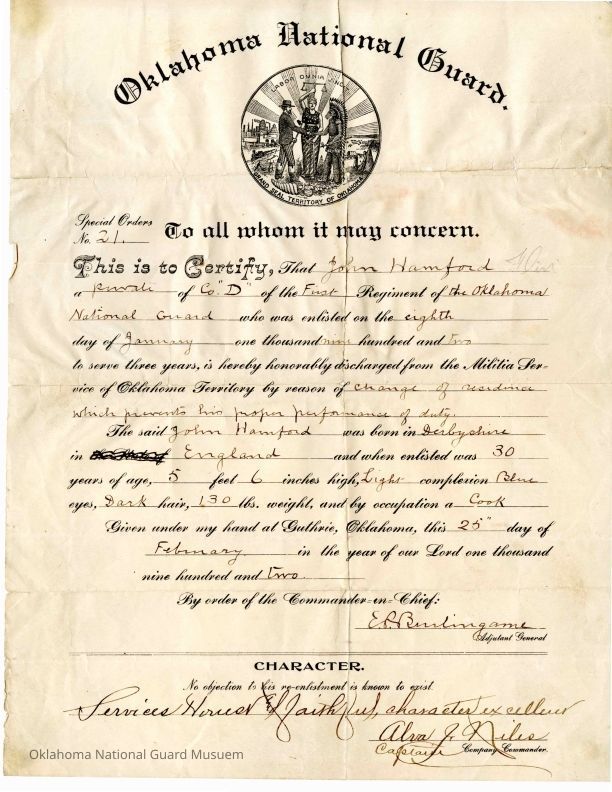 Oklahoma National Guard.
LABOR OMNIA VINCIT
GRAND SEAL TERRITORY OF OKLAHOMA
Special Orders
No. 21.
To all whom it may concern.
This is to Certify, That John Hamford
a private of Co. "D" of the First Regiment of the Oklahoma
National Guard who was enlisted on the eighth
day of January one thousand nine hundred and two
to serve three years, is hereby honorably discharged from the Militia Ser-
vice of Oklahoma Territory by reason of change of residence
which prevents his proper performance of duty.
The said John Hamford was born in Derbyshire
in England and when enlisted was 30
years of age, 5 feet 6 inches high, Light complexion Blue
eyes, Dark hair, 130 lbs. weight, and by occupation a Cook
Given under my hand at Guthrie, Oklahoma, this 25" day of
February in the year of our Lord one thousand
nine hundred and two.
By order of the Commander-in-Chief:
E.P. Burlingame
Adjutant General
CHARACTER.
No objection to his re-enlistment is known to exist.
Services Honest & faithful, character excellent
Alva J. Niles
Captain Company Commander.
Oklahoma National Guard Musuem